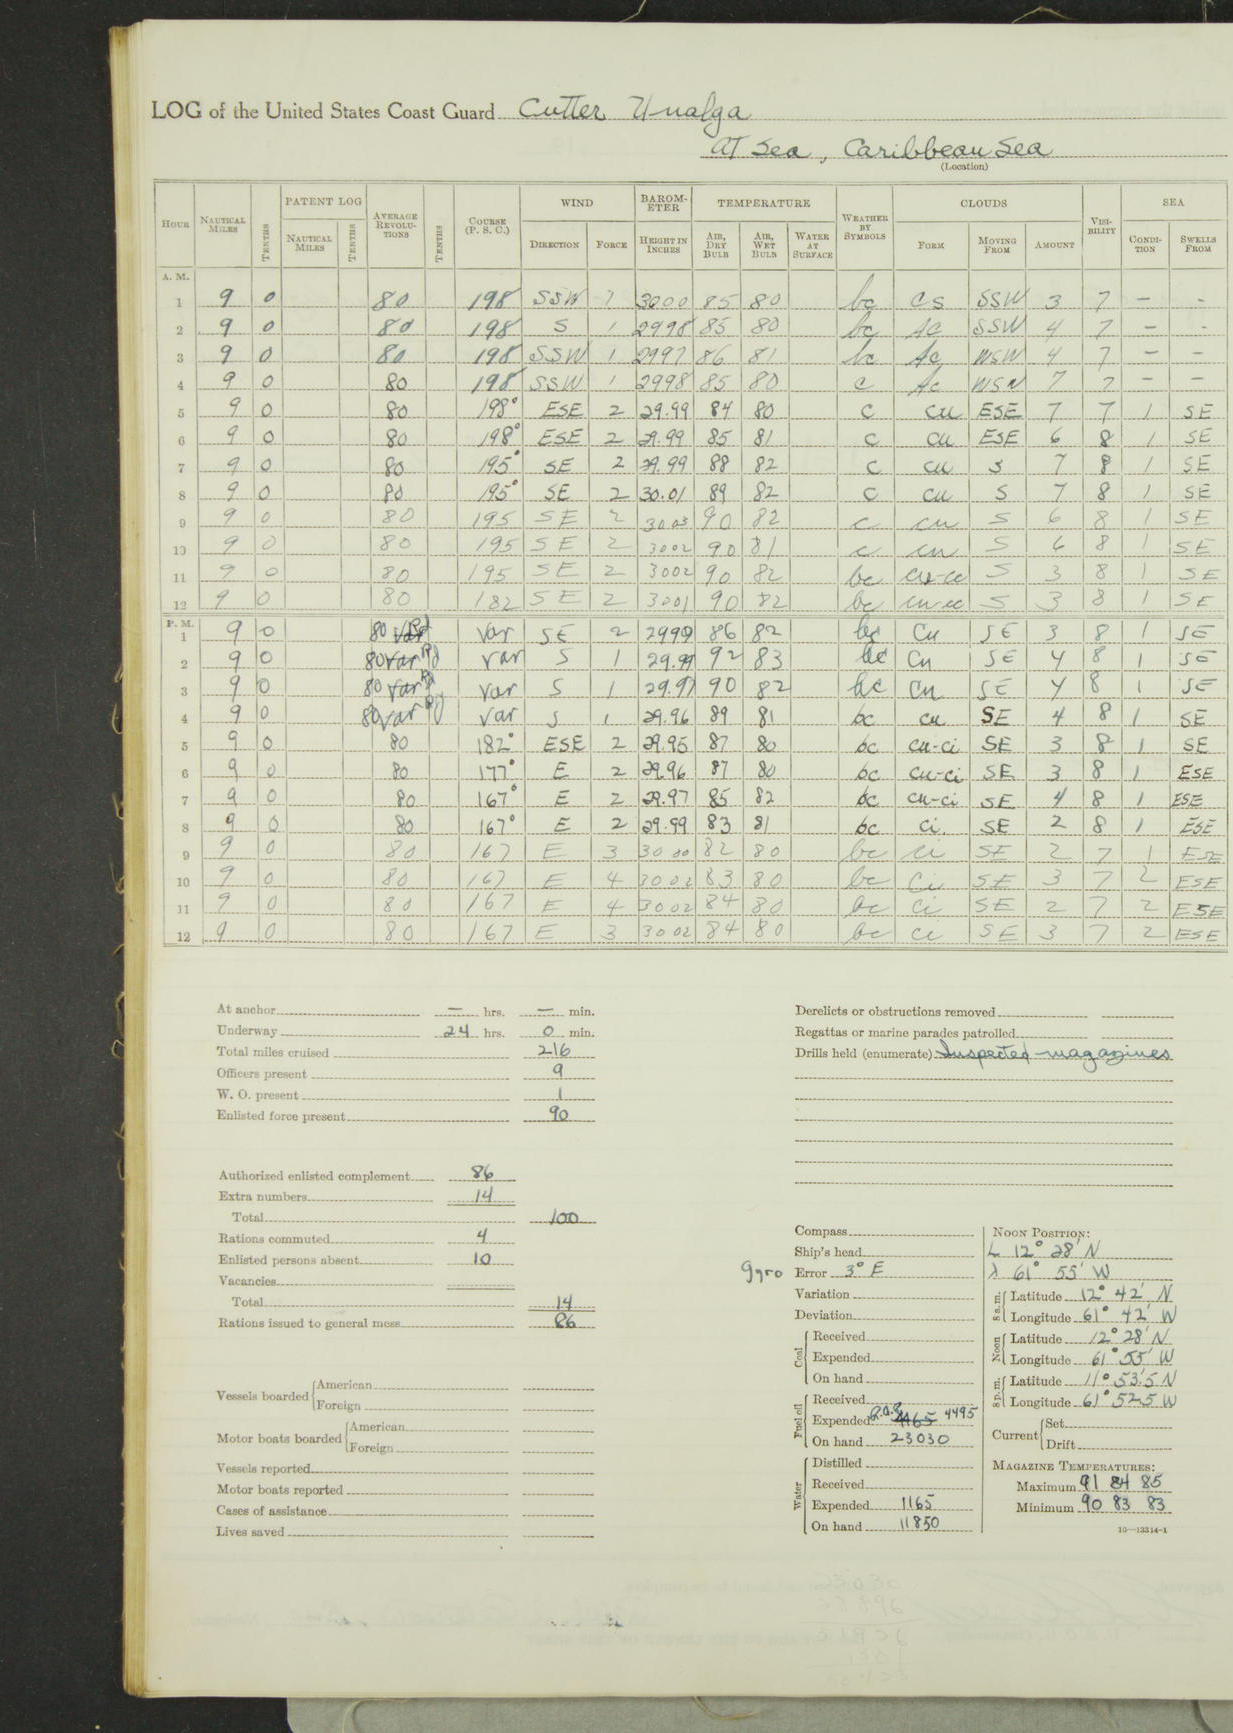 LOG of the United States Coast Guard Cutter Unalga
At Sea, Caribbean Sea
(Location)
HOUR NAUTICAL MILES TENTHS PATENT LOG NAUTICAL MILES TENTHS AVERAGE REVOLUTIONS TENTHS COURSE (P. S. C.) WIND DIRECTION FORCE BAROMETER HEIGHT IN INCHES TEMPERATURE AIR, DRY BULB AIR, WET BULB WATER AT SURFACE WEATHER BY SYMBOLS CLOUDS FORM MOVING FROM AMOUNT VISIBILITY SEA CONDITION SWELLS FROM
A. M.
1 9 0 80 198 SSW 1 3000 85 80 bc cs SSW 3 7 – -
2 9 0 80 198 S 1 2998 85 80 bc Ac SSW 4 7 – -
3 9 0 80 198 SSW 1 2997 86 81 bc Ac WSW 4 7 – –
4 9 0 80 198 SSW 1 2998 85 80 c Ac WSW 7 7 – –
5 9 0 80 198° ESE 2 29.99 84 80 c cu ESE 7 7 1 SE
6 9 0 80 198° ESE 2 29.99 85 81 c cu ESE 6 8 1 SE
7 9 0 80 195° SE 2 29.99 88 82 c cu S 7 8 1 SE
8 9 0 80 195° SE 2 30.01 89 82 c cu S 7 8 1 SE
9 9 0 80 195 SE 2 3003 90 82 c cu S 6 8 1 SE
10 9 0 80 195 SE 2 3002 90 81 c cu S 6 8 1 SE
11 9 0 80 195 SE 2 3002 90 82 bc cu-cc S 3 8 1 SE
12 9 0 80 182 SE 2 3001 90 82 bc cu-cc S 3 8 1 SE
P. M.
1 9 0 80 var Var SE 2 2999 86 82 bc Cu SE 3 8 1 SE
2 9 0 80 var var S 1 29.99 92 83 bc Cu SE 4 8 1 SE
3 9 0 80 var var S 1 29.97 90 82 bc Cu SE 4 8 1 SE
4 9 0 80 var var S 1 29.96 89 81 bc cu SE 4 8 1 SE
5 9 0 80 182° ESE 2 29.95 87 80 bc cu-ci SE 3 8 1 SE
6 9 0 80 177° E 2 29.96 87 80 bc cu-ci SE 3 8 1 ESE
7 9 0 80 167° E 2 29.97 85 82 bc cu-ci SE 4 8 1 ESE
8 9 0 80 167° E 2 29.99 83 81 bc ci. SE 2 8 1 ESE
9 9 0 80 167 E 3 3000 82 80 bc ci SE 2 7 1 ESE
10 9 0 80 167 E 4 3002 83 80 bc Ci SE 3 7 2 ESE
11 9 0 80 167 E 4 3002 84 80 bc ci SE 2 7 2 ESE
12 9 0 80 167 E 3 3002 84 80 bc ci SE 3 7 2 ESE
At anchor – hrs. – min.
Underway 24 hrs. 0 min.
Total miles cruised 216
Officers present 9
W. O. present 1
Enlisted force present 90
Authorized enlisted complement 86
Extra numbers 14
Total 100
Rations commuted 4
Enlisted persons absent 10
Vacancies
Total 14
Rations issued to general mess 86
Vessels boarded American
Foreign
Motor boats boarded American
Foreign
Vessels reported
Motor boats reported
Cases of assistance
Lives saved
Derelicts or obstructions removed
Regattas or marine parades patrolled
Drills held (enumerate) Inspected magazines
Compass
Ship's head
Gyro Error 3° E
Variation
Deviation
Coal Received
Expended
On hand
Fuel oil Received
Expended 1165 4495
On hand 23030
Water Distilled
Received
Expended 1165
On hand 11850
NOON POSITION:
L 12° 28' N
λ 61° 55' W
8 a.m. Latitude 12° 42' N
Longitude 61° 42' W
Noon Latitude 12° 28' N
Longitude 61° 55' W
8 p.m. Latitude 11° 53.5 N
Longitude 61° 52.5 W
Current Set
Drift
MAGAZINE TEMPERATURES:
Maximum 91 84 85
Minimum 90 83 83
10—13314-1